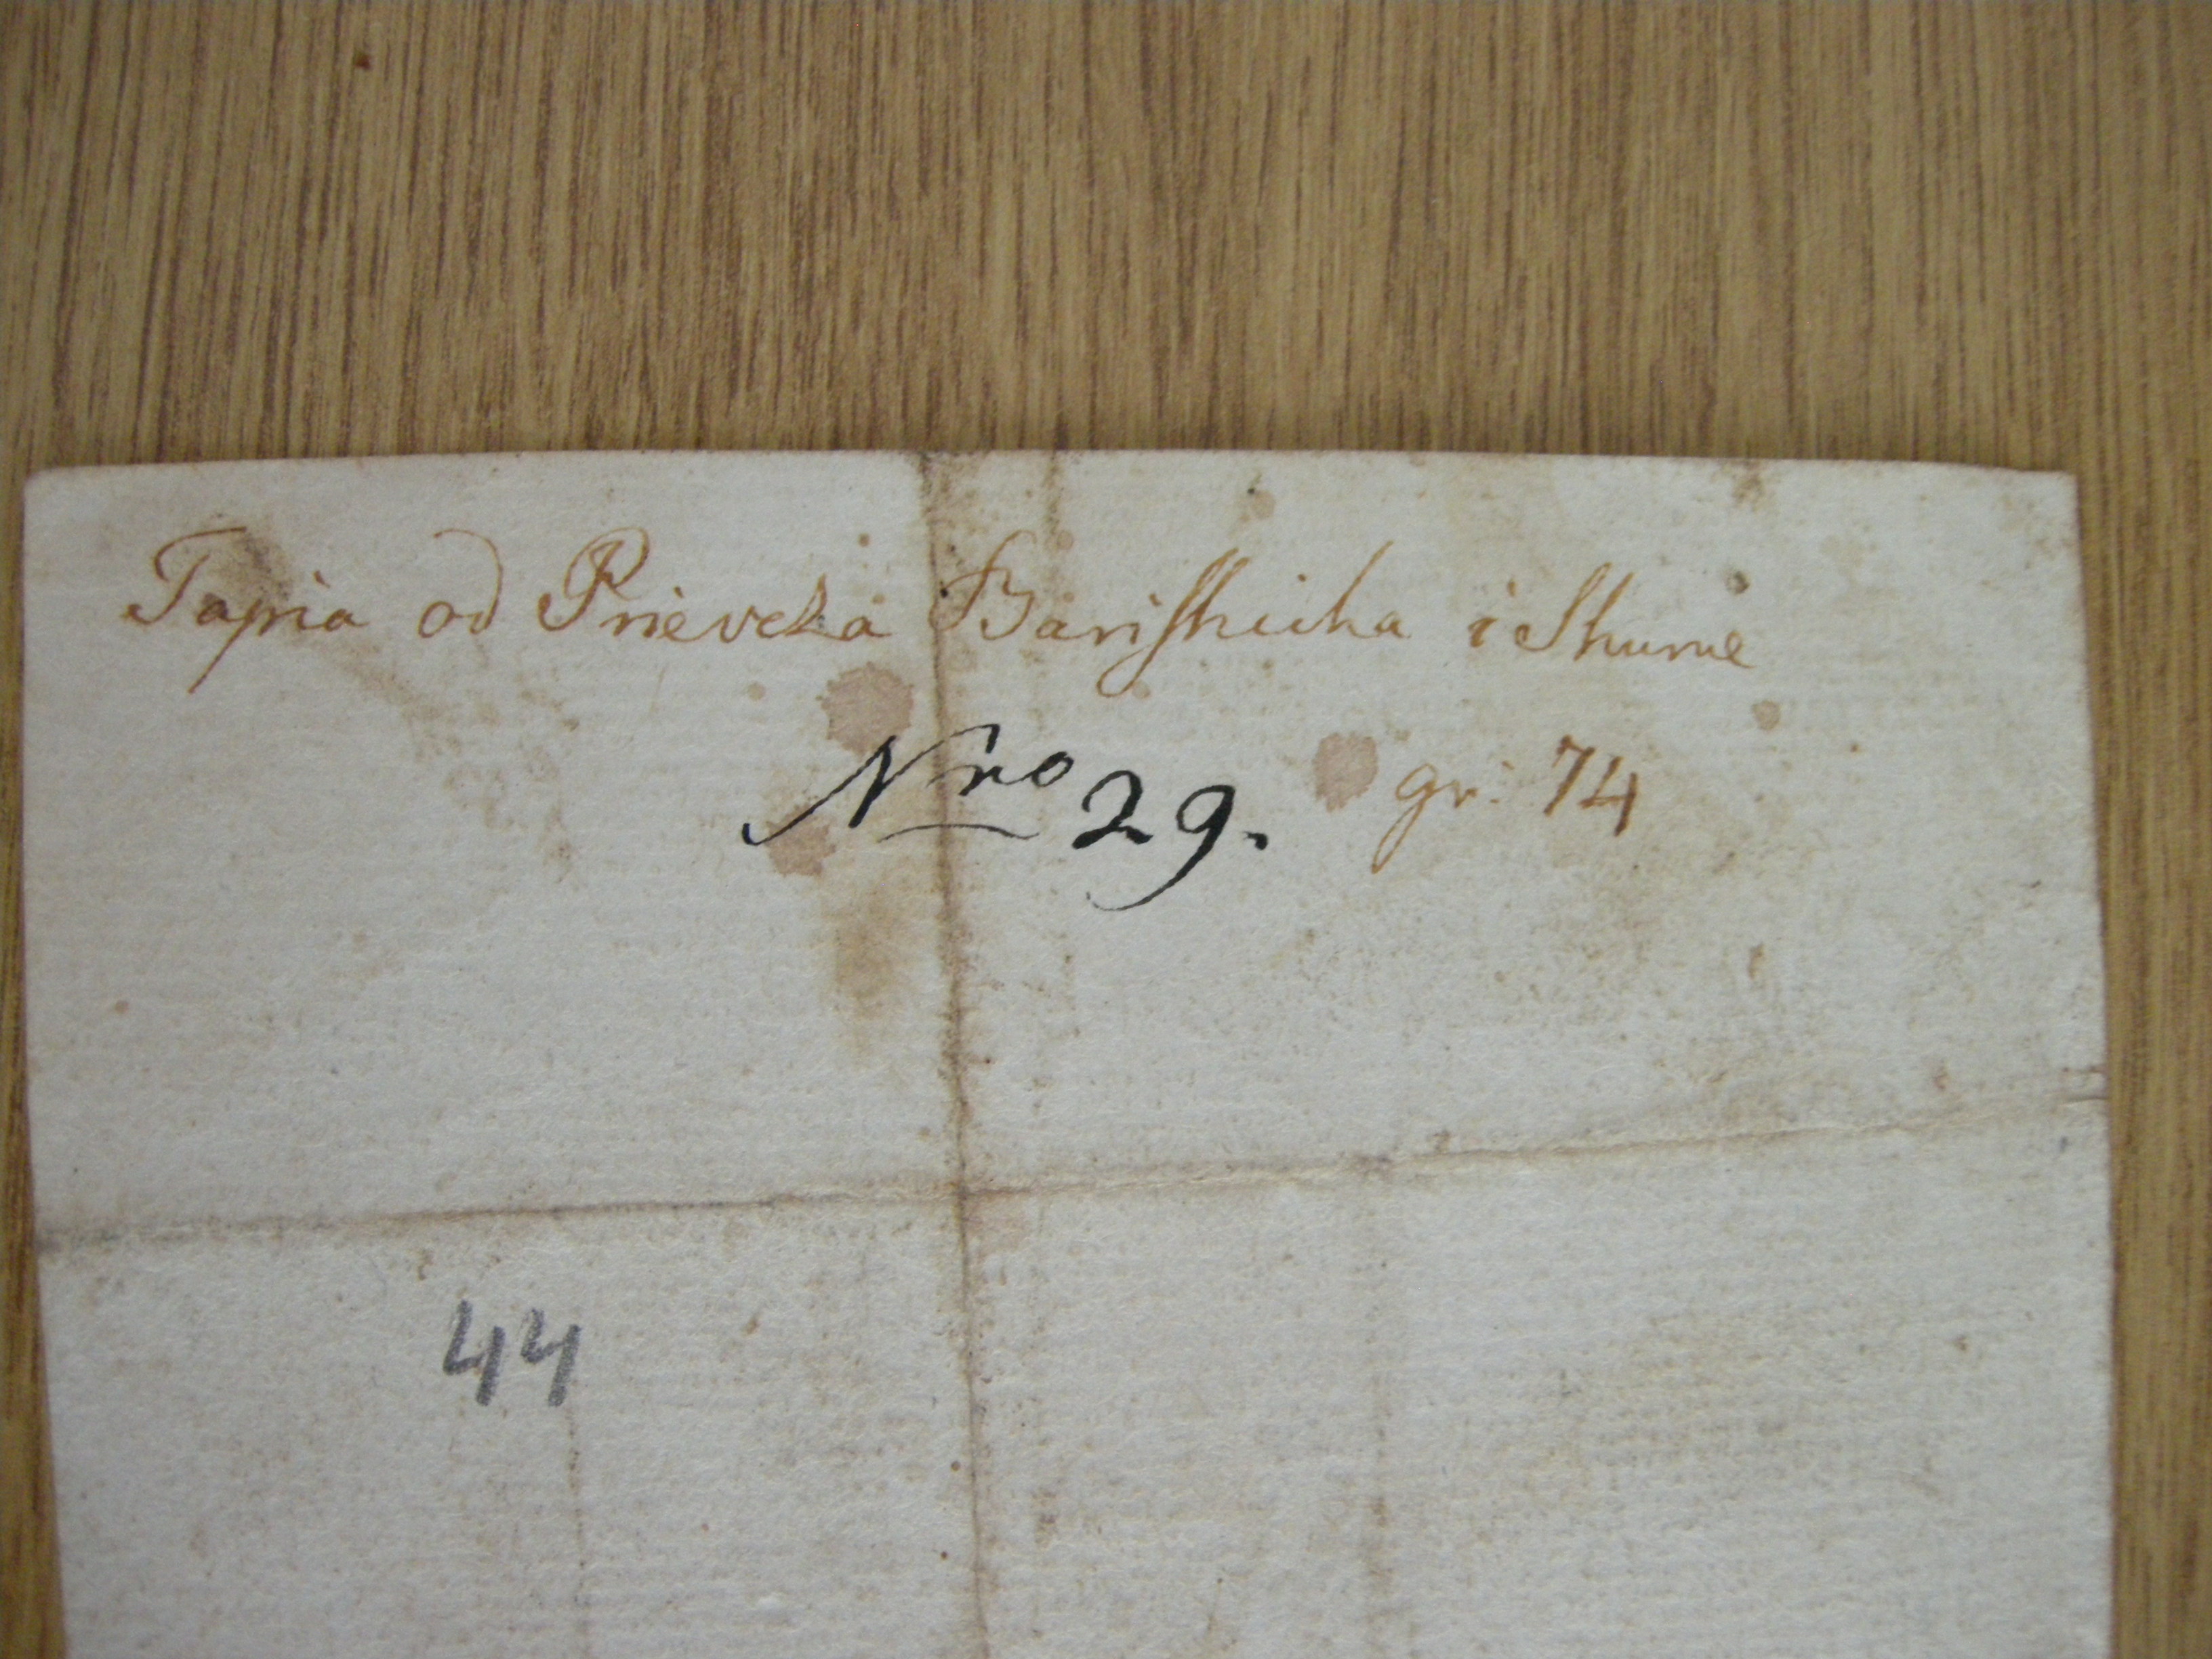 Tapia od Prieveza Barishicha i Shume
Nro 29. gr: 74
44